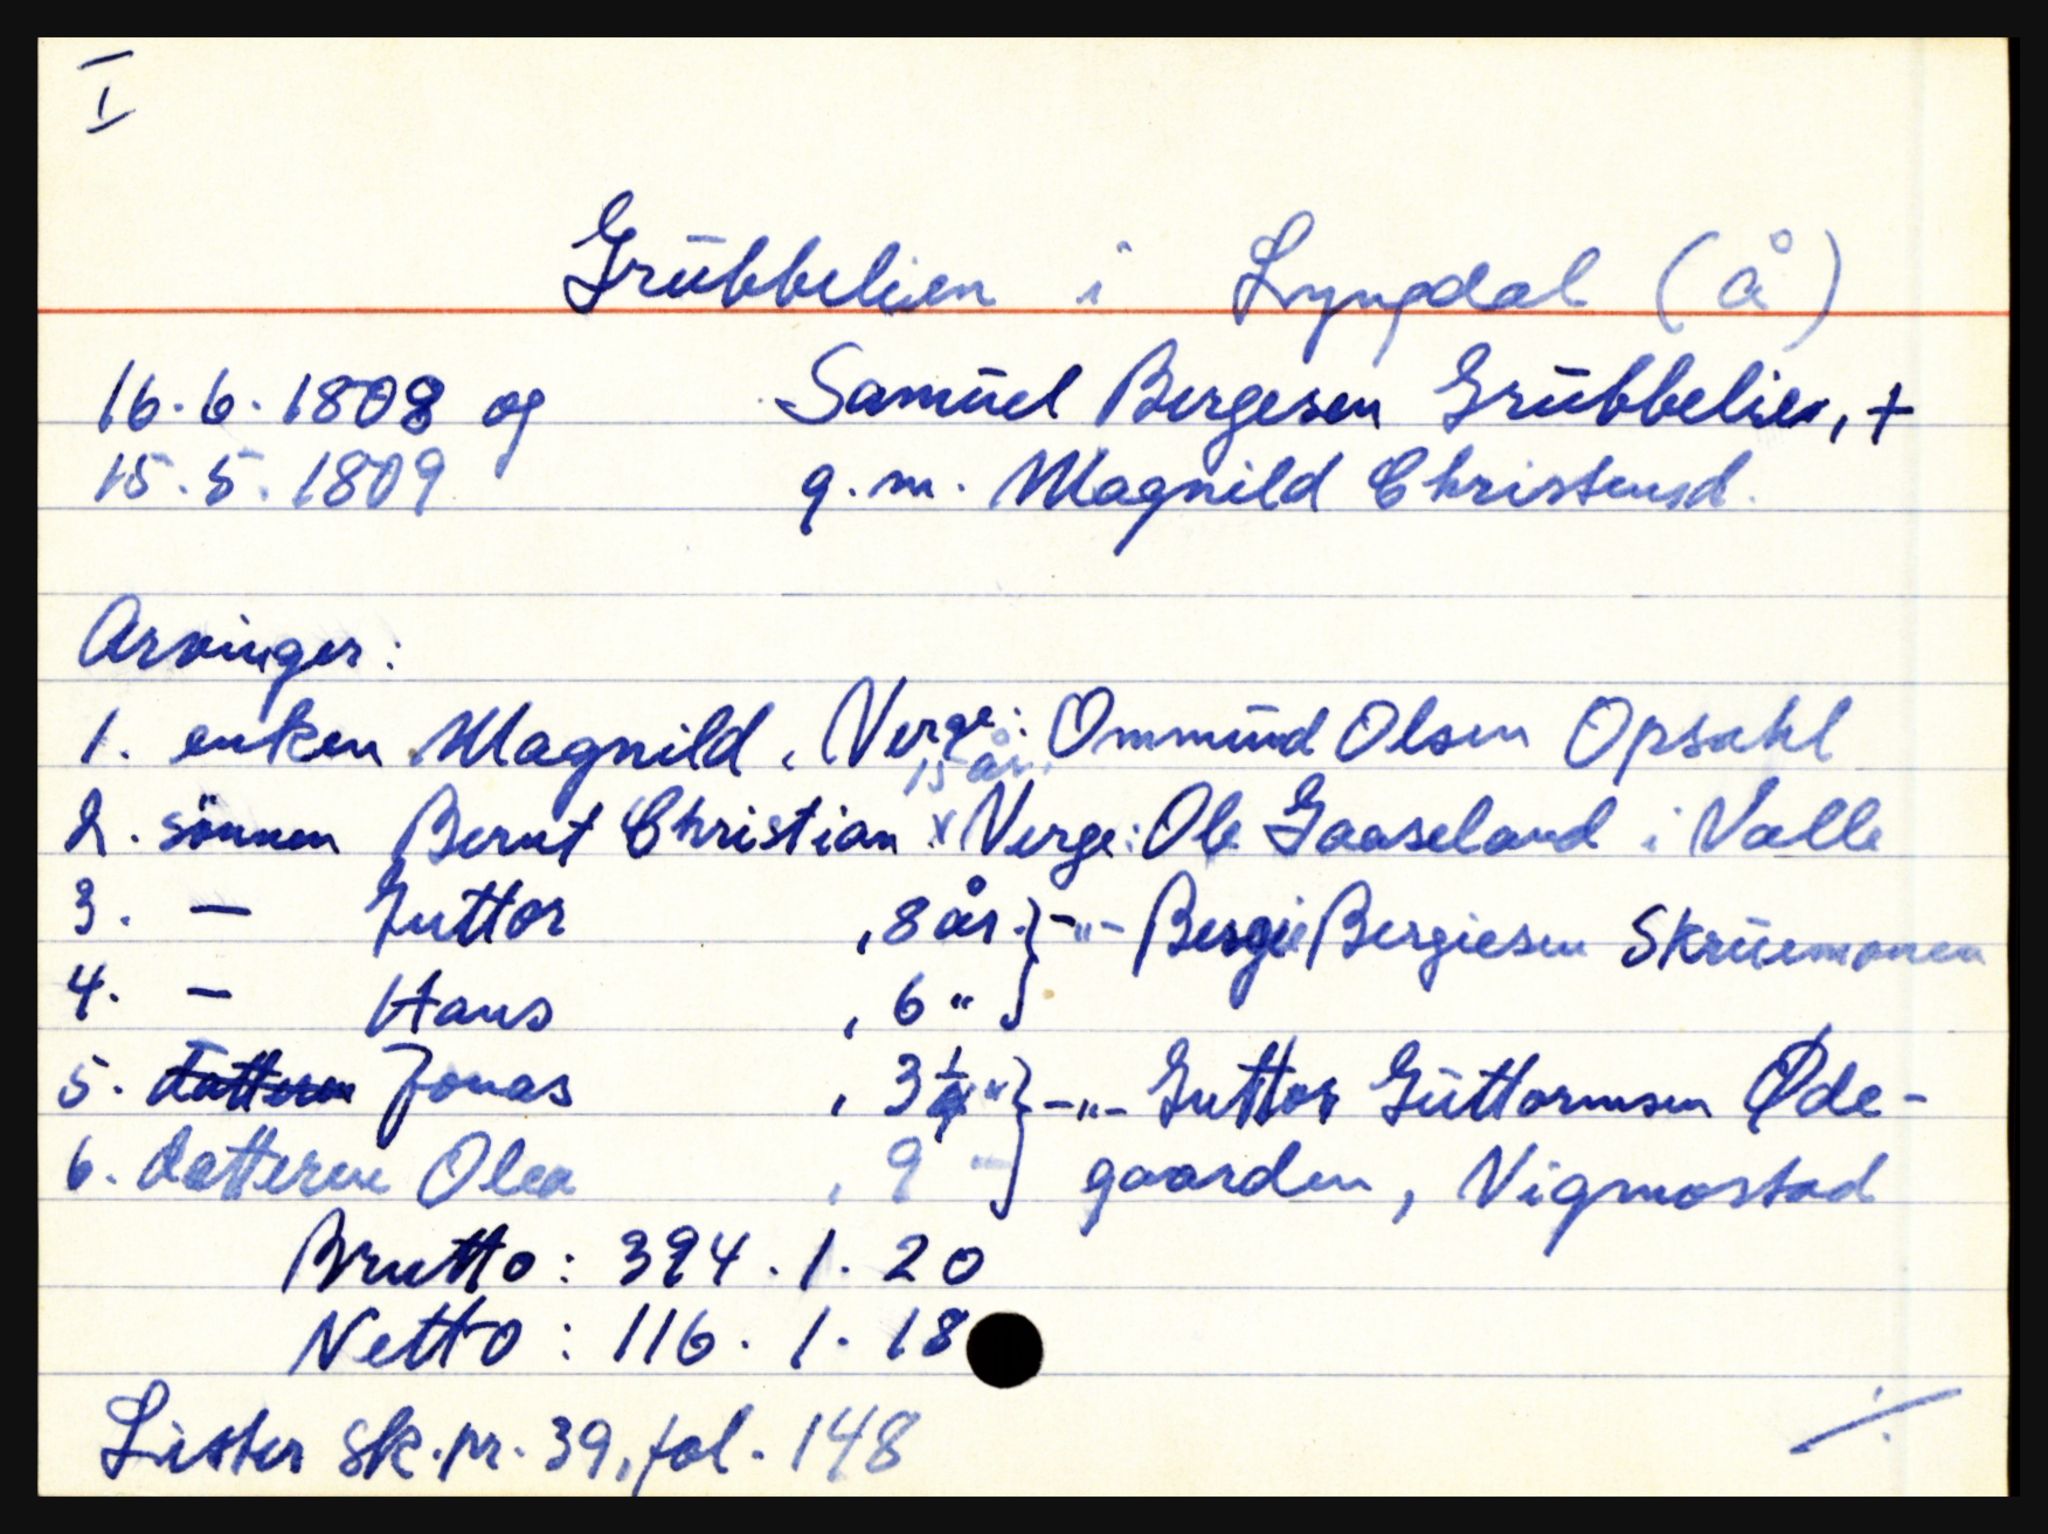 I
Grübbelien i Lyngdal (å)
16.6.1808 og Samüel Bergesen Grübbelien, +
15.5.1809 g.m. Magnild Christensd.
Arvinger:
1. enken Magnild. Verge: Ommünd Olsen Opsahl
15 år.
2. sönnen Bernt Christian x Verge: Ole Gaaseland i Valle
3. — Guttor , 8 år. } -"- Bergie Bergiesen Skrüemonen
4. — Hans , 6 " }
5. datteren Jonas , 3 1/4 " } -"- Guttor Güttormsen Øde-
6. datteren Olea , 9 - } gaarden, Vigmostad
Brutto: 394.1.20
Netto: 116.1.18
Lister sk.pr. 39, fol. 148
./.